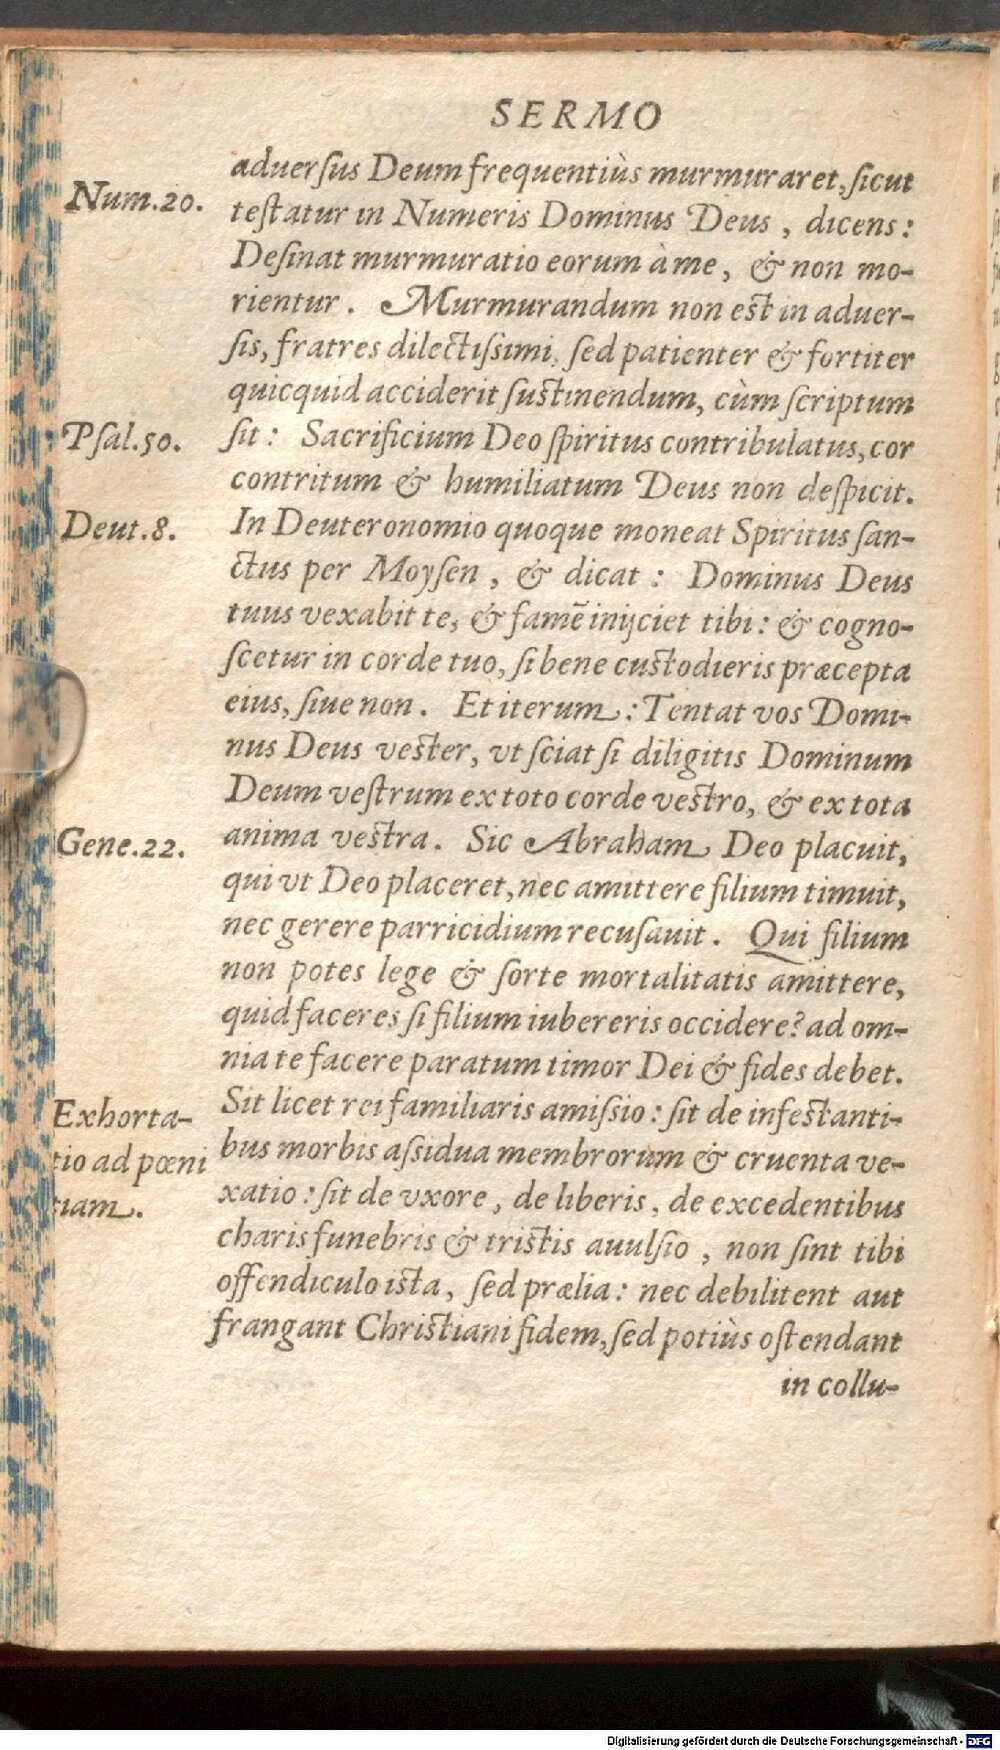 SERMO
aduerſus Deum frequentiùs murmuraret, ſicut
Num.20.
teſtatur in Numeris Dominus Deus, dicens:
Deſinat murmuratio eorum à me, & non mo-
rientur. Murmurandum non eſt in aduer-
ſis, fratres dilectiſsimi, ſed patienter & fortiter
quicquid acciderit ſuſtinendum, cùm ſcriptum
Pſal.50.
ſit: Sacrificium Deo ſpiritus contribulatus, cor
contritum & humiliatum Deus non deſpicit.
Deut.8.
In Deuteronomio quoque moneat Spiritus ſan-
ctus per Moyſen, & dicat: Dominus Deus
tuus vexabit te, & famē inijciet tibi: & cogno-
ſcetur in corde tuo, ſi bene cuſtodieris præcepta
eius, ſiue non. Et iterum: Tentat vos Domi-
nus Deus veſter, vt ſciat ſi diligitis Dominum
Deum veſtrum ex toto corde veſtro, & ex tota
Gene.22.
anima veſtra. Sic Abraham Deo placuit,
qui vt Deo placeret, nec amittere filium timuit,
nec gerere parricidium recuſauit. Qui filium
non potes lege & ſorte mortalitatis amittere,
quid faceres ſi filium iubereris occidere? ad om-
nia te facere paratum timor Dei & fides debet.
Exhorta-
tio ad pœni
tiam.
Sit licet rei familiaris amiſsio: ſit de infeſtanti-
bus morbis aſsidua membrorum & cruenta ve-
xatio: ſit de vxore, de liberis, de excedentibus
charis funebris & triſtis auulſio, non ſint tibi
offendiculo iſta, ſed prælia: nec debilitent aut
frangant Chriſtiani fidem, ſed potiùs oſtendant
in collu-
Digitalisierung gefördert durch die Deutsche Forschungsgemeinschaft - DFG